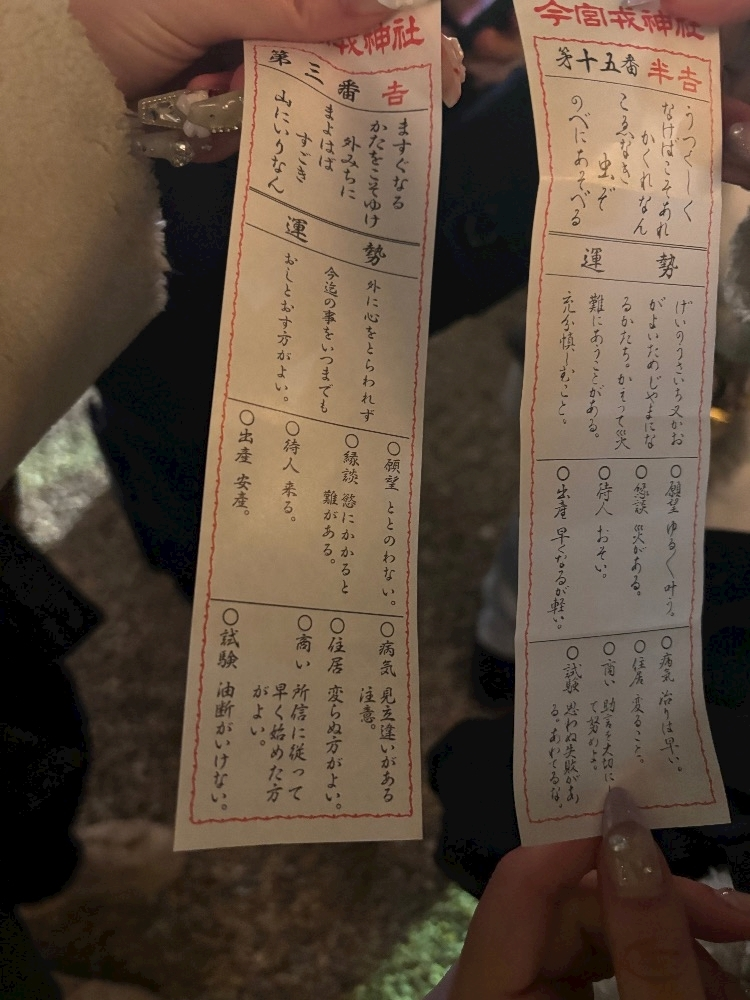 戎神社
第三番 吉
ますぐなる
かたをこそゆけ
外みちに
まよはば
すごき
山にいりなん
運勢
外に心をとらわれず
今迄の事をいつまでも
おしとおす方がよい。
○願望 ととのわない。
○縁談 慾にかかると
難がある。
○待人 来る。
○出産 安産。
○病気 見立違いがある
注意。
○住居 変らぬ方がよい。
○商い 所信に従って
早く始めた方
がよい。
○試験 油断がいけない。
今宮戎神社
第十五番 半吉
うつくしく
なけばこそあれ
かくれなん
こゑなき
虫ぞ
のべにあそべる
運勢
げいのうさいち又かお
がよいためじゃまにな
るかたち。かえって災
難にあうことがある。
充分慎しむこと。
○願望 ゆるく叶う。
○縁談 災がある。
○待人 おそい。
○出産 早くなるが軽い。
○病気 治りは早い。
○住居 変ること。
○商い 助言を大切にし
て努めよ。
○試験 思わぬ失敗があ
る。あわてるな。